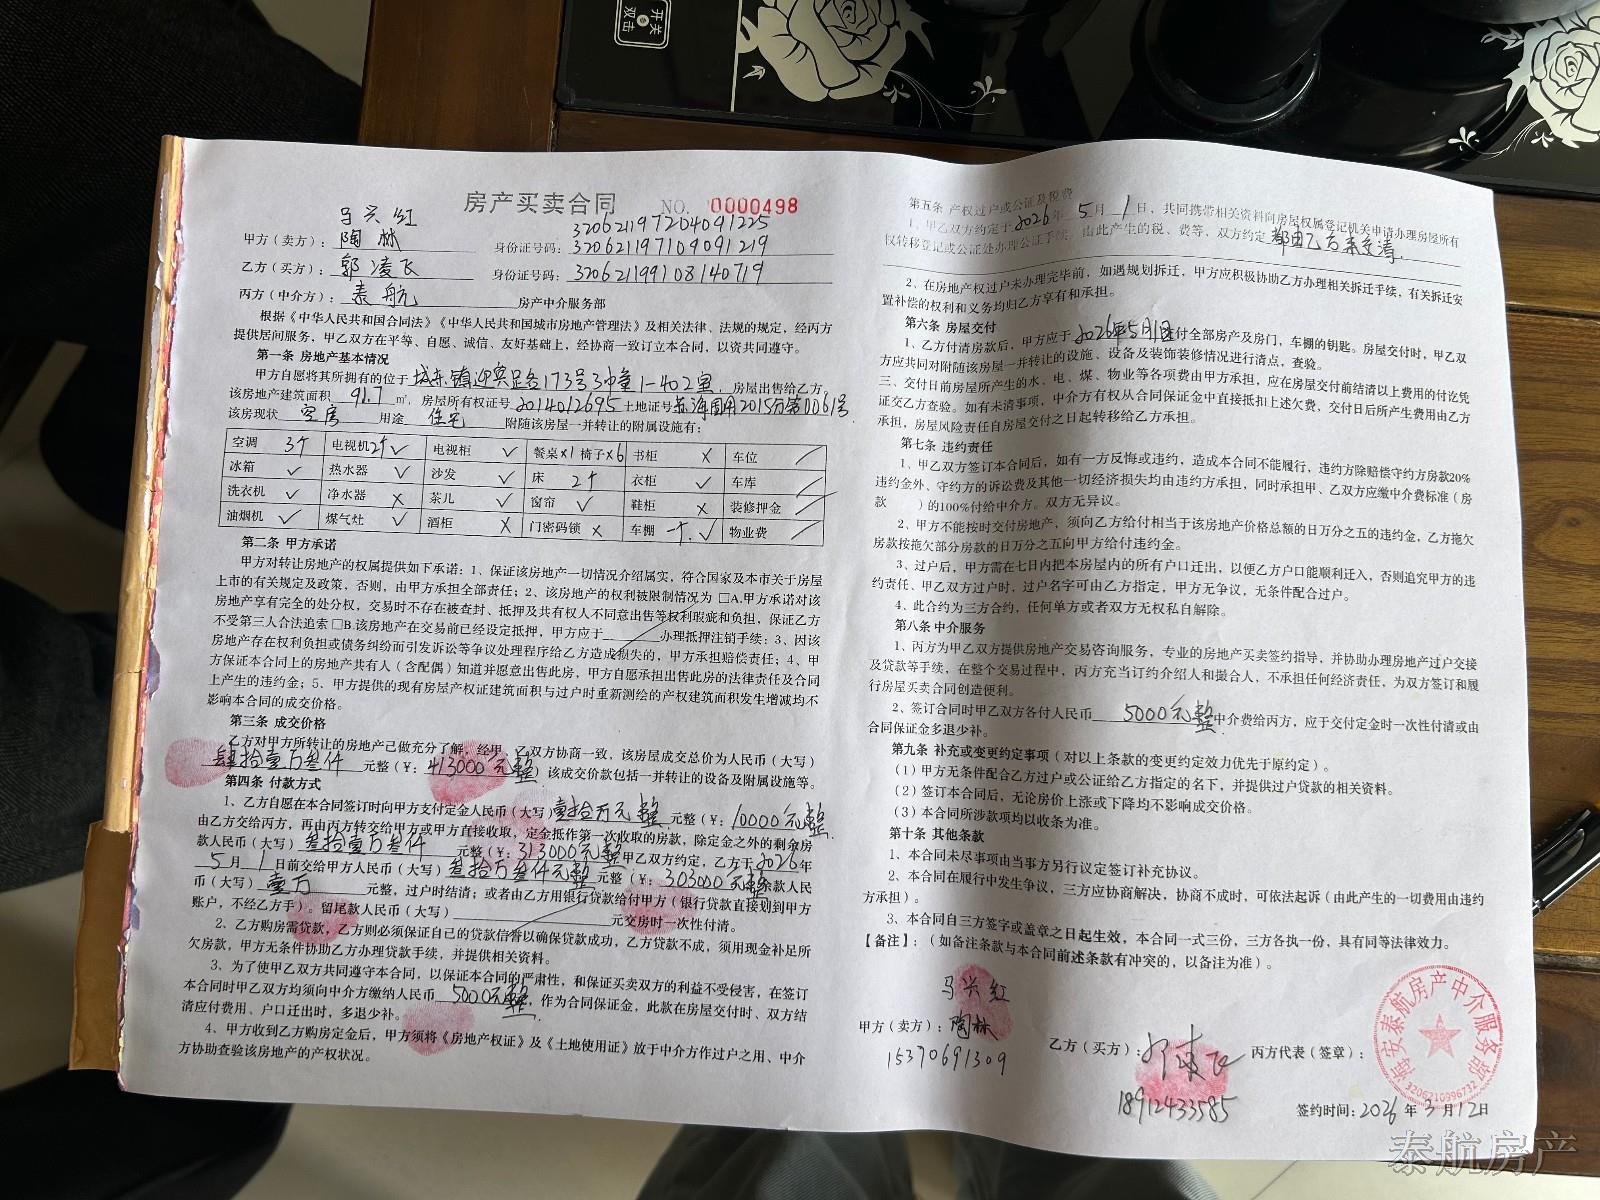 开关
双击
房产买卖合同 NO. 0000498
马兴红 320621197204091225
甲方（卖方）：陶林 身份证号码：320621197109091219
乙方（买方）：郭凌飞 身份证号码：320621199108140719
丙方（中介方）：泰航 房产中介服务部
根据《中华人民共和国合同法》《中华人民共和国城市房地产管理法》及相关法律、法规的规定，经丙方
提供居间服务，甲乙双方在平等、自愿、诚信、友好基础上，经协商一致订立本合同，以资共同遵守。
第一条 房地产基本情况
甲方自愿将其所拥有的位于城东镇迎宾路173号3幢1-402室，房屋出售给乙方。
该房地产建筑面积 91.7 ㎡，房屋所有权证号2014012695土地证号 海国用2015分第0061号
该房现状 空房 用途 住宅 附随该房屋一并转让的附属设施有：
空调 3个 电视机2个✓ 电视柜 ✓ 餐桌×1 椅子×6 书柜 × 车位 /
冰箱 ✓ 热水器 ✓ 沙发 ✓ 床 2个 衣柜 ✓ 车库 /
洗衣机 ✓ 净水器 × 茶几 ✓ 窗帘 ✓ 鞋柜 × 装修押金 /
油烟机 ✓ 煤气灶 ✓ 酒柜 × 门密码锁 × 车棚 一个✓ 物业费 /
第二条 甲方承诺
甲方对转让房地产的权属提供如下承诺：1、保证该房地产一切情况介绍属实，符合国家及本市关于房屋
上市的有关规定及政策，否则，由甲方承担全部责任；2、该房地产的权利被限制情况为 □A.甲方承诺对该
房地产享有完全的处分权，交易时不存在被查封、抵押及共有权人不同意出售等权利瑕疵和负担，保证乙方
不受第三人合法追索 □B.该房地产在交易前已经设定抵押，甲方应于 办理抵押注销手续；3、因该
房地产存在权利负担或债务纠纷而引发诉讼等争议处理程序给乙方造成损失的，甲方承担赔偿责任；4、甲
方保证本合同上的房地产共有人（含配偶）知道并愿意出售此房，甲方自愿承担出售此房的法律责任及合同
上产生的违约金；5、甲方提供的现有房屋产权证建筑面积与过户时重新测绘的产权建筑面积发生增减均不
影响本合同的成交价格。
第三条 成交价格
乙方对甲方所转让的房地产已做充分了解，经甲、乙双方协商一致，该房屋成交总价为人民币（大写）
肆拾壹万叁仟 元整（¥：413000元整）该成交价款包括一并转让的设备及附属设施等。
第四条 付款方式
1、乙方自愿在本合同签订时向甲方支付定金人民币（大写）壹拾万元整 元整（¥：10000元整
由乙方交给丙方，再由丙方转交给甲方或甲方直接收取，定金抵作第一次收取的房款，除定金之外的剩余房
款人民币（大写）叁拾壹万叁仟 元整（¥：313000元整 甲乙双方约定，乙方于2026年
5月1日前交给甲方人民币（大写）叁拾万叁仟元整 元整（¥：303000元整余款人民
币（大写）壹万 元整，过户时结清；或者由乙方用银行贷款给付甲方（银行贷款直接划到甲方
账户，不经乙方手）。留尾款人民币（大写） 元交房时一次性付清。
2、乙方购房需贷款，乙方则必须保证自己的贷款信誉以确保贷款成功，乙方贷款不成，须用现金补足所
欠房款，甲方无条件协助乙方办理贷款手续，并提供相关资料。
3、为了使甲乙双方共同遵守本合同，以保证本合同的严肃性，和保证买卖双方的利益不受侵害，在签订
本合同时甲乙双方均须向中介方缴纳人民币 5000元整，作为合同保证金，此款在房屋交付时、双方结
清应付费用、户口迁出时，多退少补。
4、甲方收到乙方购房定金后，甲方须将《房地产权证》及《土地使用证》放于中介方作过户之用、中介
方协助查验该房地产的产权状况。
第五条 产权过户或公证及税费
1、甲乙双方约定于2026年5月1日，共同携带相关资料向房屋权属登记机关申请办理房屋所有
权转移登记或公证处办理公证手续，由此产生的税、费等，双方约定 都由乙方来交清
2、在房地产权过户未办理完毕前，如遇规划拆迁，甲方应积极协助乙方办理相关拆迁手续，有关拆迁安
置补偿的权利和义务均归乙方享有和承担。
第六条 房屋交付
1、乙方付清房款后，甲方应于2026年5月1日付全部房产及房门，车棚的钥匙。房屋交付时，甲乙双
方应共同对附随该房屋一并转让的设施、设备及装饰装修情况进行清点，查验。
三、交付日前房屋所产生的水、电、煤、物业等各项费由甲方承担，应在房屋交付前结清以上费用的付讫凭
证交乙方查验。如有未清事项，中介方有权从合同保证金中直接抵扣上述欠费，交付日后所产生费用由乙方
承担，房屋风险责任自房屋交付之日起转移给乙方承担。
第七条 违约责任
1、甲乙双方签订本合同后，如有一方反悔或违约，造成本合同不能履行，违约方除赔偿守约方房款20%
违约金外、守约方的诉讼费及其他一切经济损失均由违约方承担，同时承担甲、乙双方应缴中介费标准（房
款 ）的100%付给中介方。双方无异议。
2、甲方不能按时交付房地产，须向乙方给付相当于该房地产价格总额的日万分之五的违约金，乙方拖欠
房款按拖欠部分房款的日万分之五向甲方给付违约金。
3、过户后，甲方需在七日内把本房屋内的所有户口迁出，以便乙方户口能顺利迁入，否则追究甲方的违
约责任、甲乙双方过户时，过户名字可由乙方指定，甲方无争议，无条件配合过户。
4、此合约为三方合约，任何单方或者双方无权私自解除。
第八条 中介服务
1、丙方为甲乙双方提供房地产交易咨询服务，专业的房地产买卖签约指导，并协助办理房地产过户交接
及贷款等手续，在整个交易过程中，丙方充当订约介绍人和撮合人，不承担任何经济责任，为双方签订和履
行房屋买卖合同创造便利。
2、签订合同时甲乙双方各付人民币 5000元整 中介费给丙方，应于交付定金时一次性付清或由
合同保证金多退少补。
第九条 补充或变更约定事项（对以上条款的变更约定效力优先于原约定）。
（1）甲方无条件配合乙方过户或公证给乙方指定的名下，并提供过户贷款的相关资料。
（2）签订本合同后，无论房价上涨或下降均不影响成交价格。
（3）本合同所涉款项均以收条为准。
第十条 其他条款
1、本合同未尽事项由当事方另行议定签订补充协议。
2、本合同在履行中发生争议，三方应协商解决，协商不成时，可依法起诉（由此产生的一切费用由违约
方承担）。
3、本合同自三方签字或盖章之日起生效，本合同一式三份，三方各执一份，具有同等法律效力。
【备注】：（如备注条款与本合同前述条款有冲突的，以备注为准）。
马兴红
甲方（卖方）：陶林
15370691309
乙方（买方）：郭凌飞
18912433585
丙方代表（签章）：
海安泰航房产中介服务部
3206210996732
签约时间：2026年3月12日
泰航房产